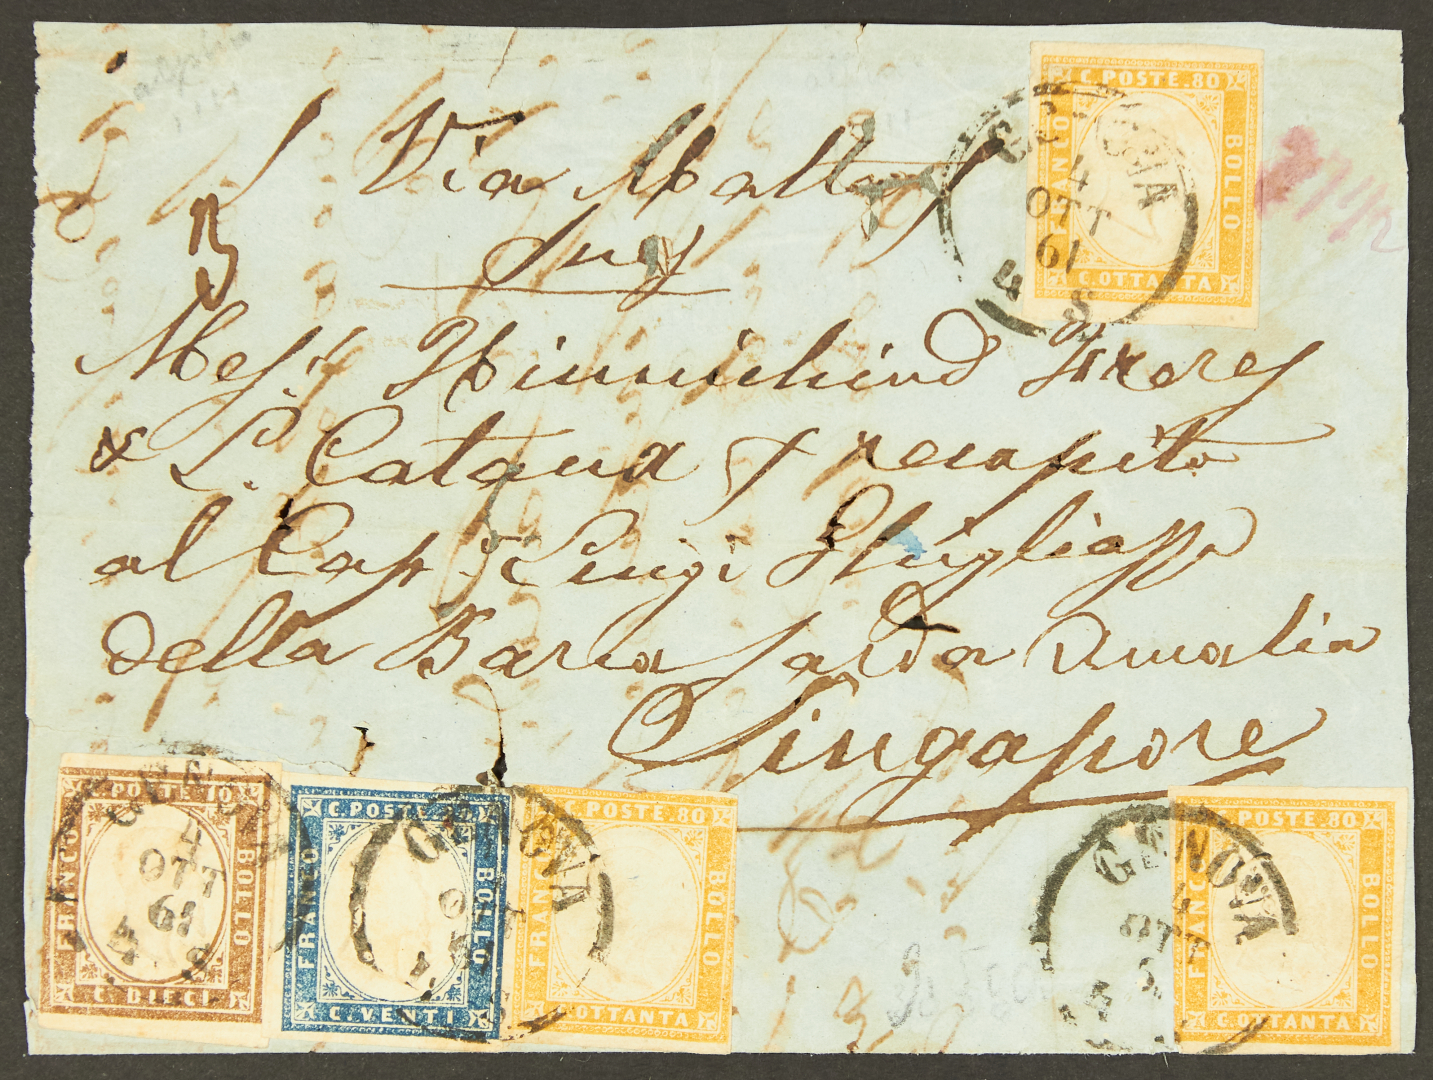 Via Malta
Suez
C. POSTE. 80
FRANCO
BOLLO
C. OTTANTA
4
OTT
61
4 S
Mess.
& P. Catana recapito
al Cap. Luigi
della Barca sarda Amalia
Singapore
POSTE 10
FRANCO
BOLLO
C. DIECI
GENOVA
4
OTT
61
4 S
C. POSTE. 20
FRANCO
BOLLO
C. VENTI
POSTE. 80
FRANCO
BOLLO
OTTANTA
GENOVA
C. POSTE. 80
FRANCO
BOLLO
C. OTTANTA
GENOVA
OTT